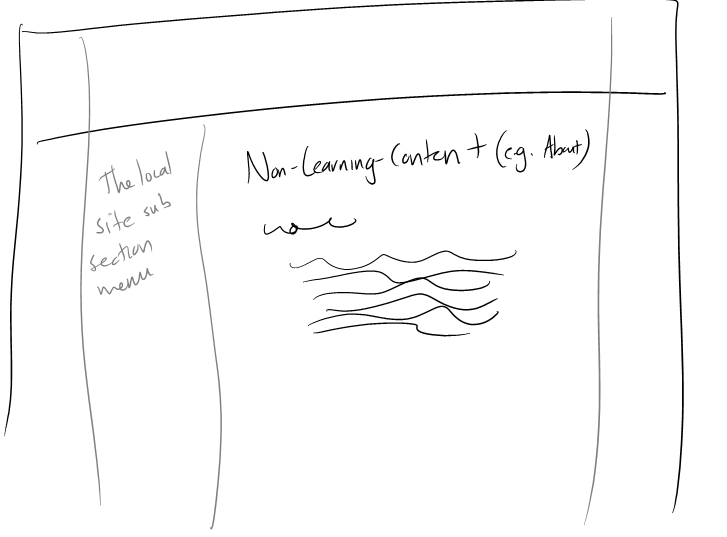 The local
site sub
section
menu
Non-Learning-Content (e.g. About)